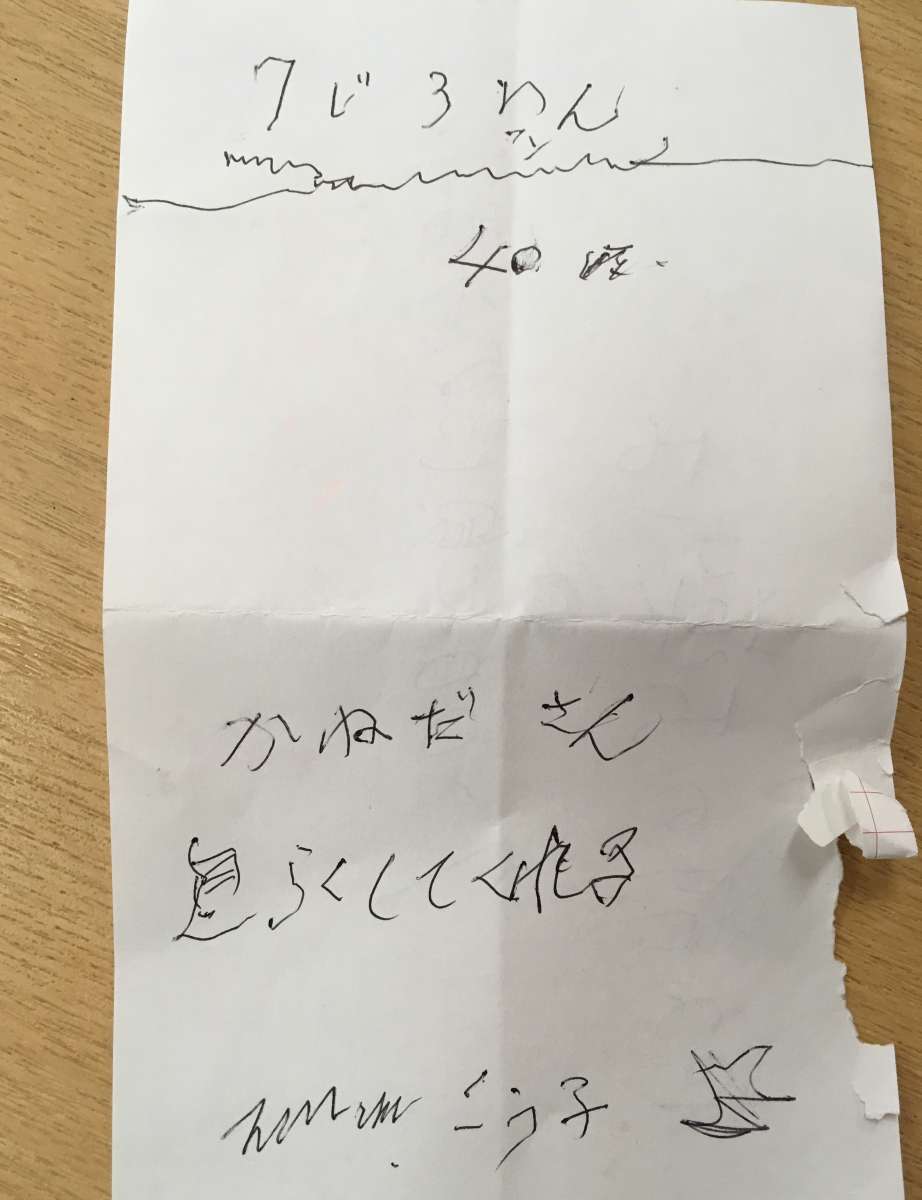 7じ3わん
フン
40度.
かねださん
らくしてくれる
こう子